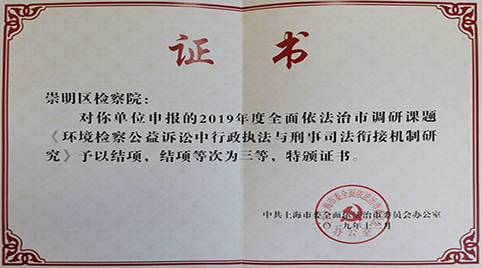 证书
崇明区检察院：
对你单位申报的2019年度全面依法治市调研课题
《环境检察公益诉讼中行政执法与刑事司法衔接机制研
究》予以结项，结项等次为三等，特颁证书。
中共上海市委全面依法治市委员会办公室
二〇一九年十二月